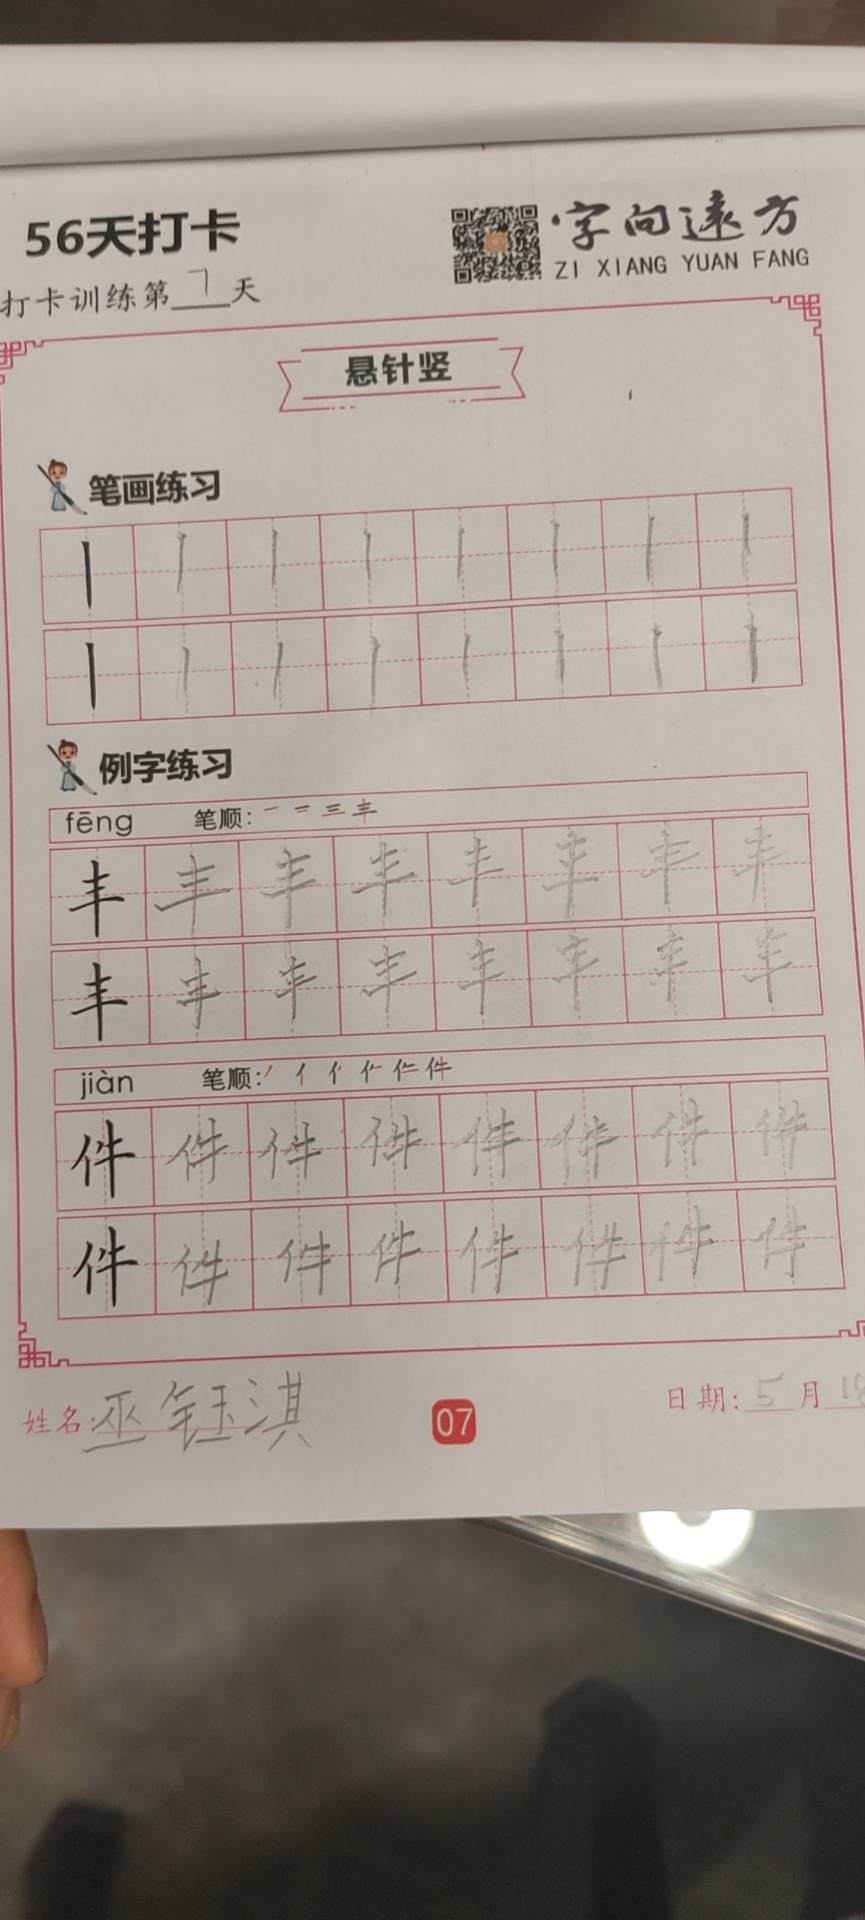 56天打卡
字向远方
ZI XIANG YUAN FANG
打卡训练第7天
悬针竖
笔画练习
丨丨丨丨丨丨丨丨
丨丨丨丨丨丨丨丨
例字练习
fēng 笔顺: 一 二 三 丰
丰丰丰丰丰丰丰丰
丰丰丰丰丰丰丰丰
jiàn 笔顺: 丿 亻 件
件件件件件件件件
件件件件件件件件
姓名:巫钰淇
07
日期:5月18